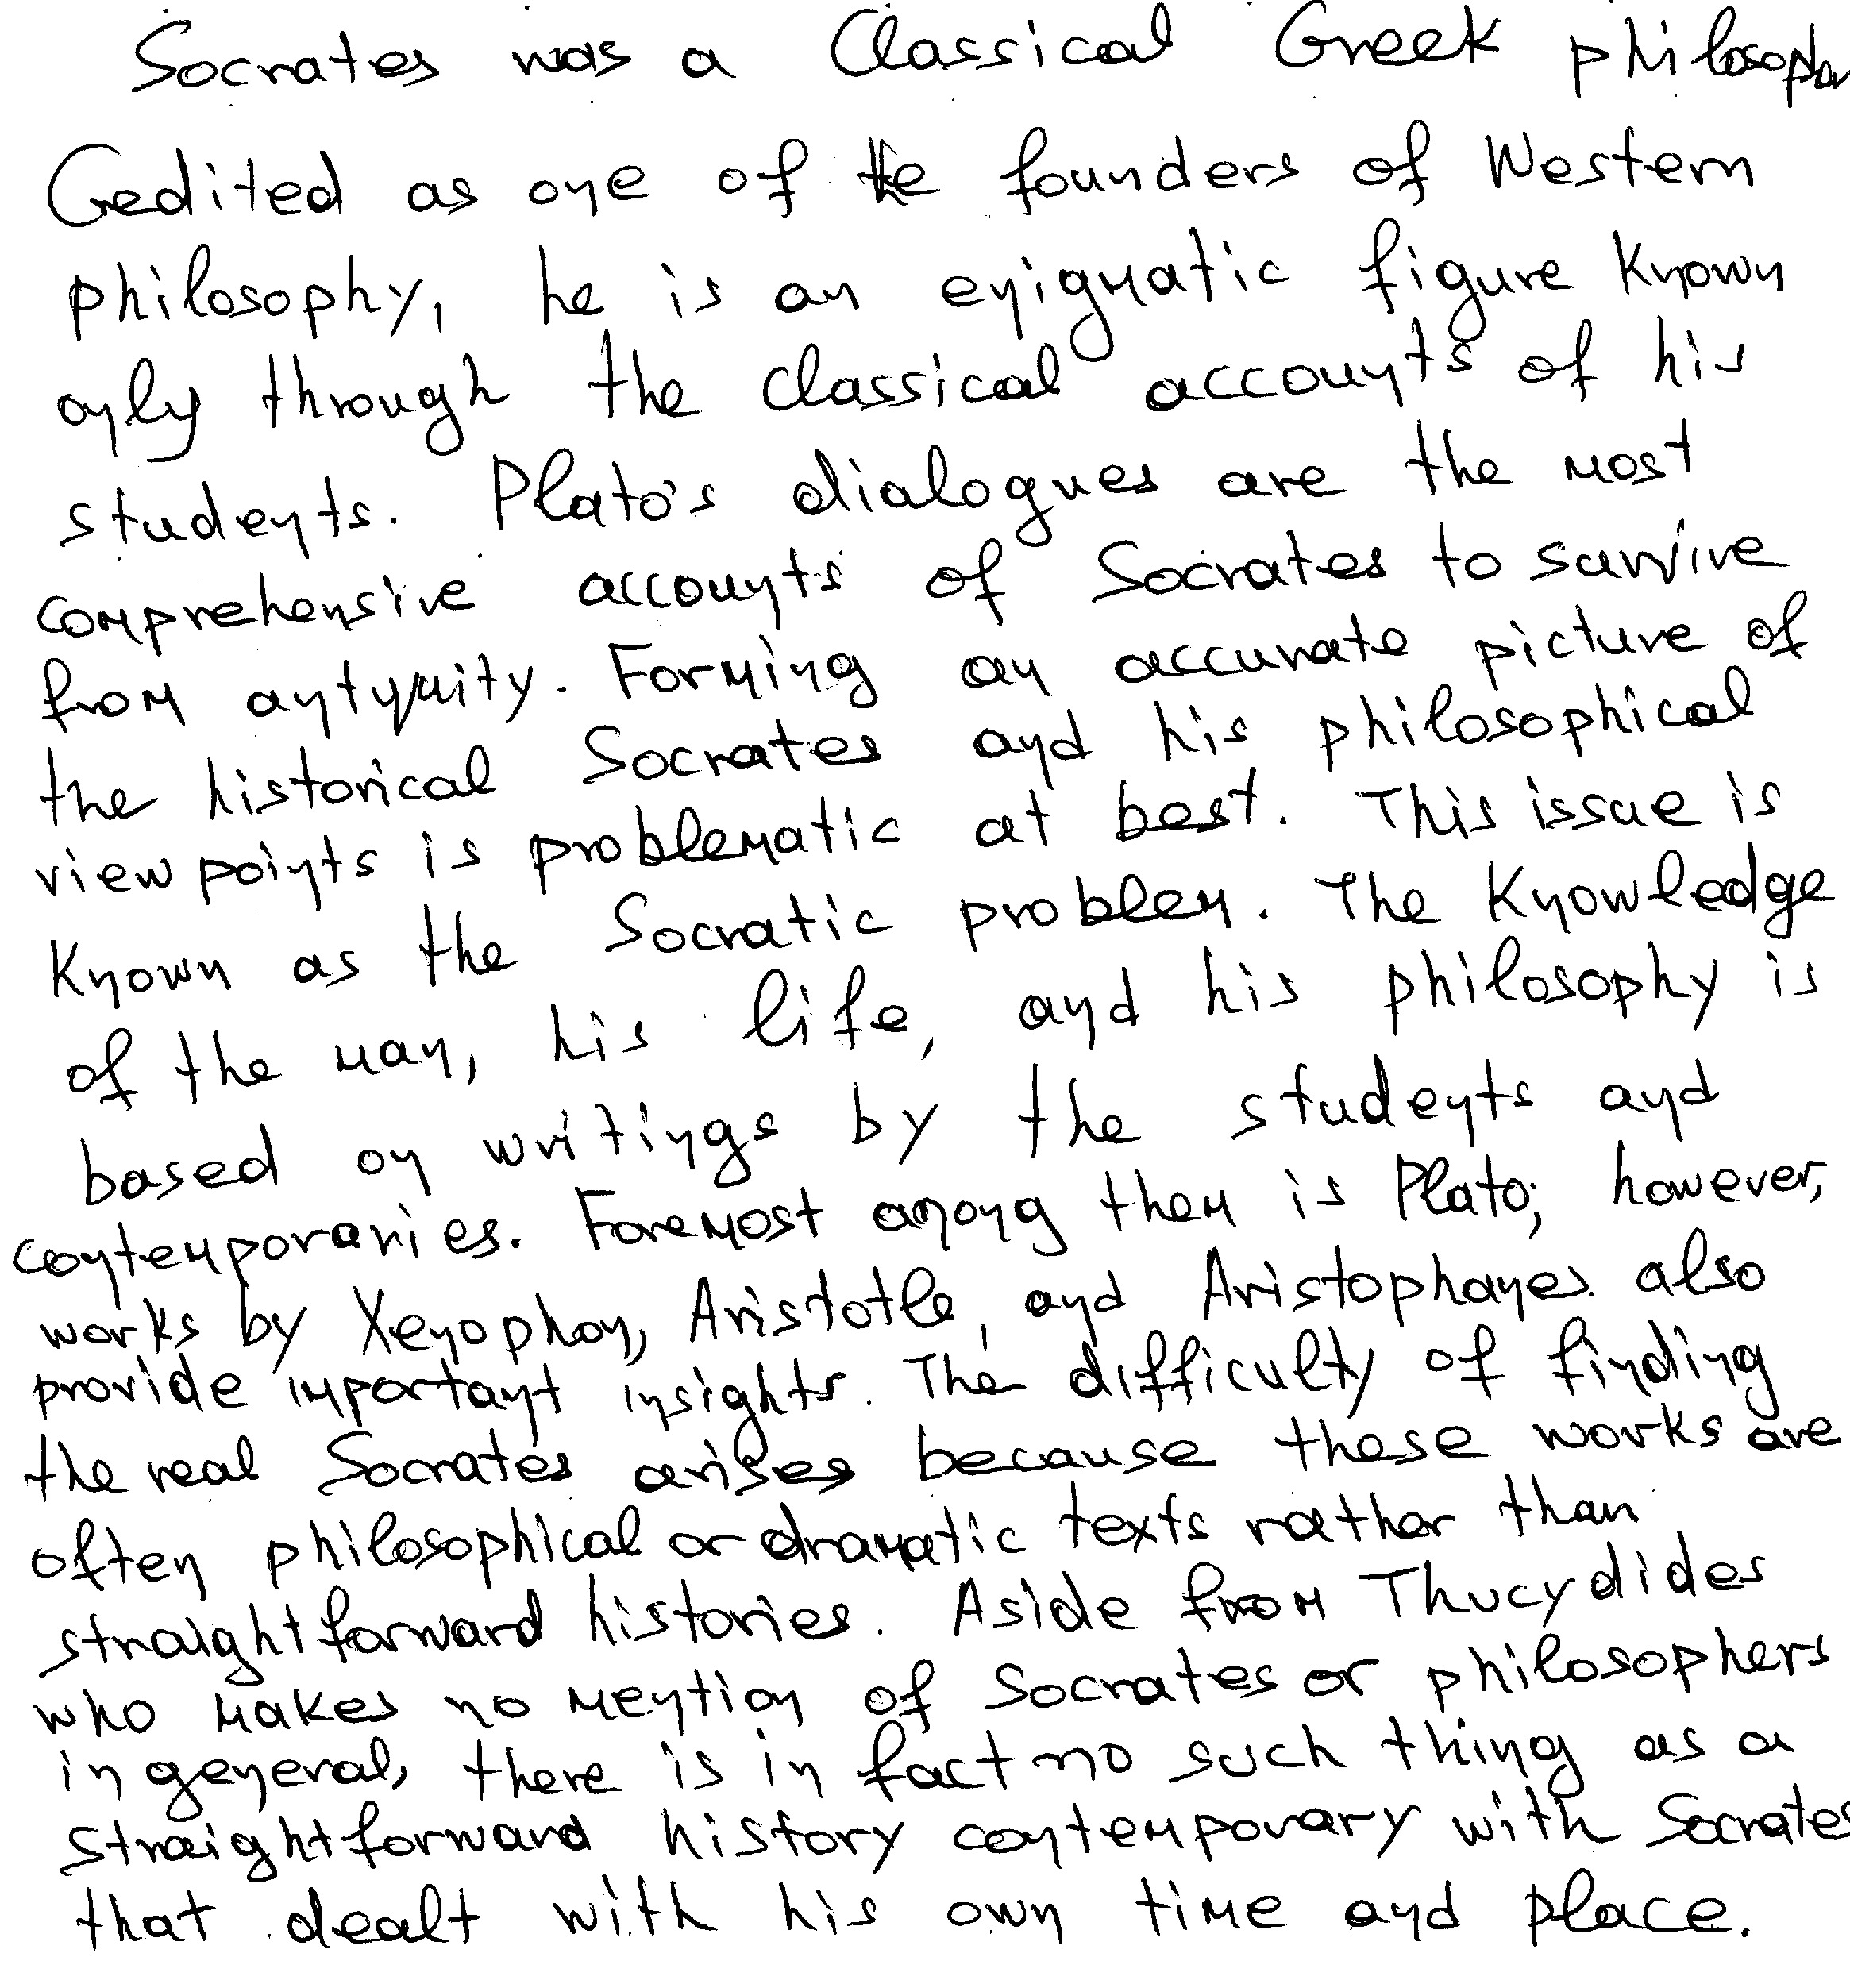 Socrates was a Classical Greek philosopher
Credited as one of the founders of Western
philosophy, he is an enigmatic figure known
only through the classical accounts of his
students. Plato's dialogues are the most
comprehensive accounts of Socrates to survive
from antyquity. Forming an accurate picture of
the historical Socrates and his philosophical
viewpoints is problematic at best. This issue is
known as the Socratic problem. The knowledge
of the man, his life, and his philosophy is
based on writings by the students and
contemporaries. Foremost among them is Plato; however,
works by Xenophon, Aristotle, and Aristophanes also
provide important insights. The difficulty of finding
the real Socrates arises because these works are
often philosophical or dramatic texts rather than
straightforward histories. Aside from Thucydides
who makes no mention of Socrates or philosophers
in general, there is in fact no such thing as a
straightforward history contemporary with Socrates
that dealt with his own time and place.